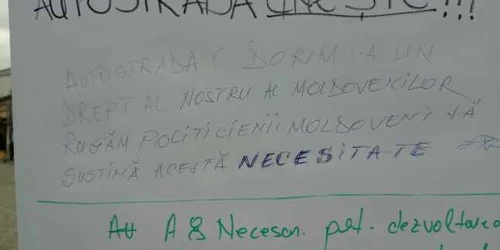 AUTOSTRADA UNEȘTE!!!
AUTOSTRADA O DORIM CA UN
DREPT AL NOSTRU AL MOLDOVENILOR
RUGĂM POLITICIENII MOLDOVENI SĂ
SUSTINĂ ACEASTĂ NECESITATE
A8 Necesar. pt. dezvoltarea